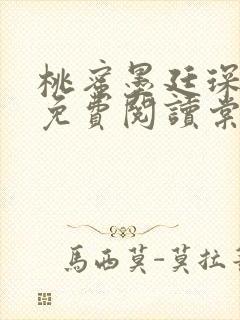 桃蜜墨廷深
免費閱讀棠
馬西莫-莫拉